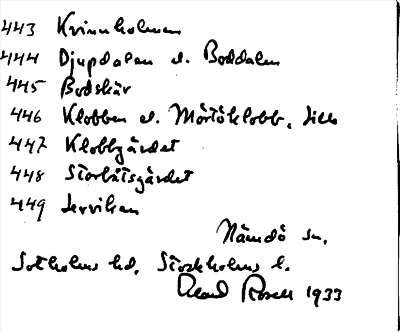 443 Kvinnholmen
444 Djupdalen el. Boddalen
445 Bodskär
446 Klobben el. Mörtöklobb, Lilla
447 Klobbgärdet
448 Storbåtsgärdet
449 Serviken
Nämdö sn,
Sotholms hd, Stockholms l.
1933